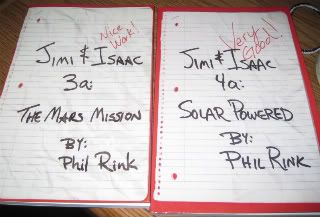 Nice
Work!
Jimi & Isaac
3a:
The Mars Mission
By:
Phil Rink
Very
Good!
Jimi & Isaac
4a:
Solar Powered
By:
Phil Rink